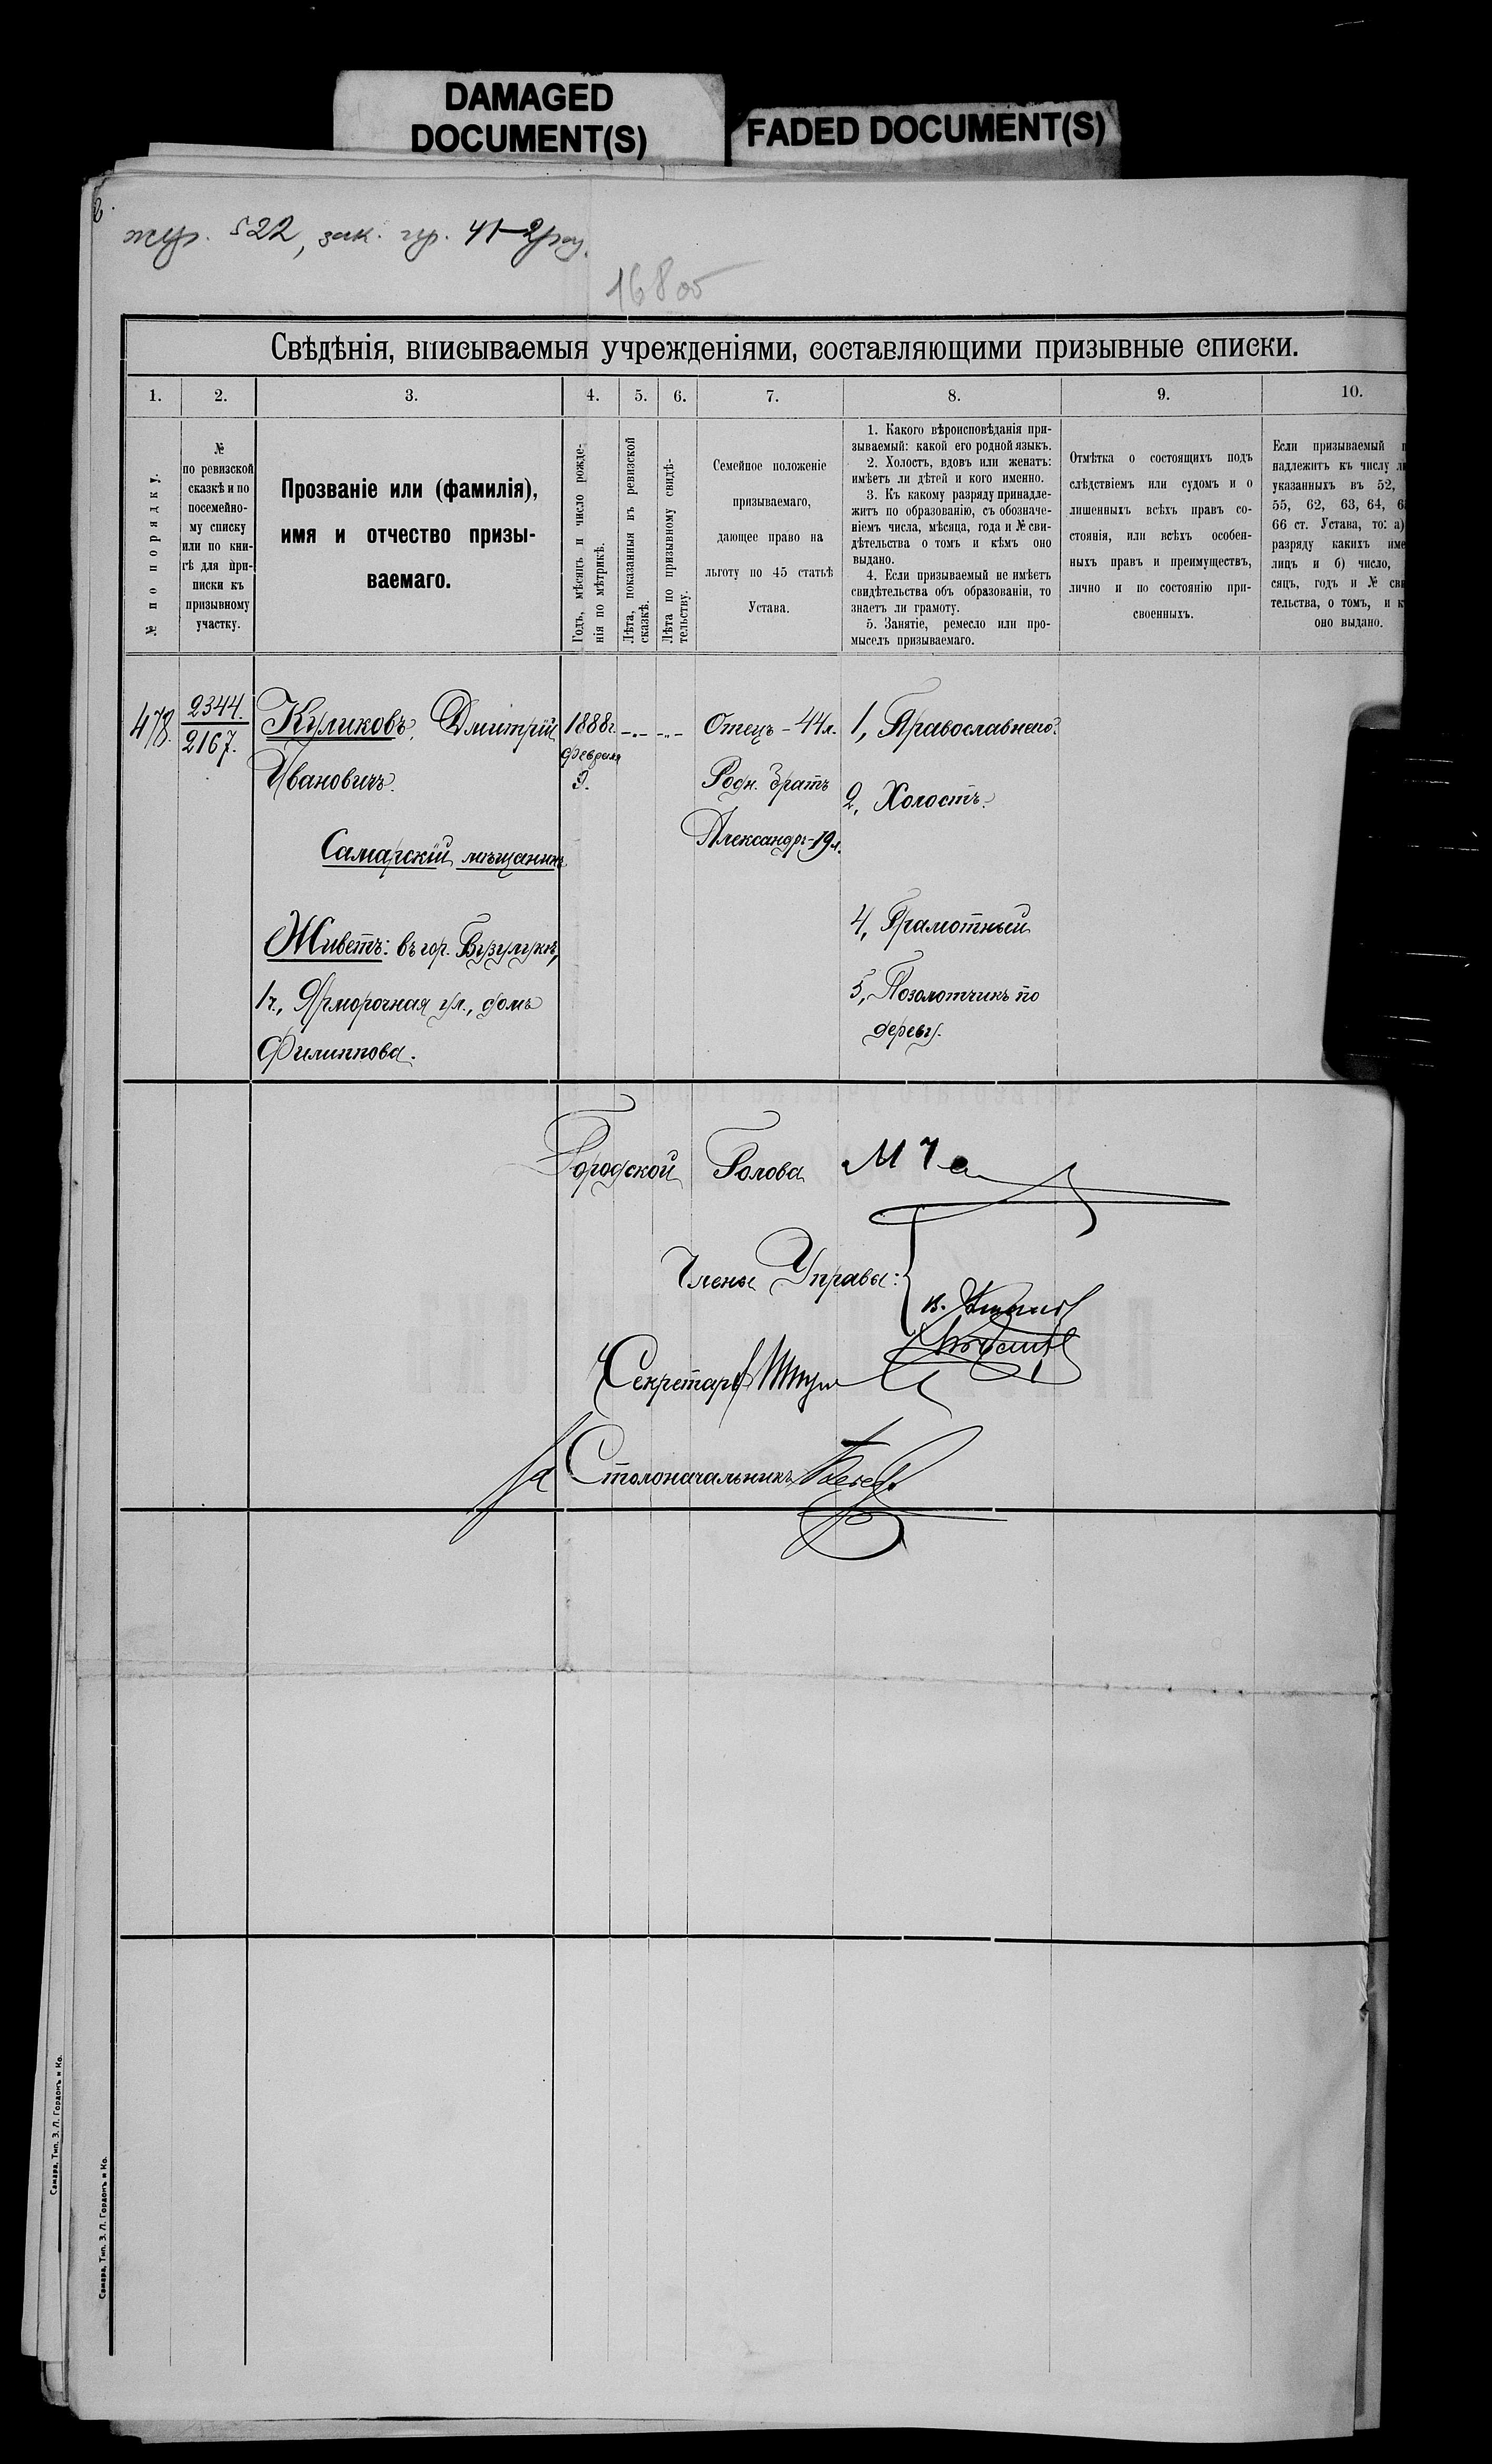 DAMAGED
DOCUMENT(S)
FADED DOCUMENT(S)
жур. 522, зак. гр. 41-
16805
Свѣдѣнія, вписываемыя учрежденіями, составляющими призывные списки.
1. 2. 3. 4. 5. 6. 7. 8. 9. 10.
№ по порядку.
№
по ревизской
сказкѣ и по
посемейно-
му списку
или по кни-
гѣ для при-
писки къ
призывному
участку.
Прозваніе или (фамилія),
имя и отчество призы-
ваемаго.
Годъ, мѣсяцъ и число рожде-
нія по мѣтрикѣ.
Лѣта, показанныя въ ревизской
сказкѣ.
Лѣта по призывному свидѣ-
тельству.
Семейное положеніе
призываемаго,
дающее право на
льготу по 45 статьѣ
Устава.
1. Какого вѣроисповѣданія при-
зываемый: какой его родной языкъ.
2. Холостъ, вдовъ или женатъ:
имѣетъ ли дѣтей и кого именно.
3. Къ какому разряду принадле-
житъ по образованію, съ обозначе-
ніемъ числа, мѣсяца, года и № сви-
дѣтельства о томъ и кѣмъ оно
выдано.
4. Если призываемый не имѣетъ
свидѣтельства объ образованіи, то
знаетъ ли грамоту.
5. Занятіе, ремесло или про-
мыселъ призываемаго.
Отмѣтка о состоящихъ подъ
слѣдствіемъ или судомъ и о
лишенныхъ всѣхъ правъ со-
стоянія, или всѣхъ особен-
ныхъ правъ и преимуществъ,
лично и по состоянію при-
своенныхъ.
Если призываемый п
надлежитъ къ числу ли
указанныхъ въ 52,
55, 62, 63, 64, 6
66 ст. Устава, то: а)
разряду какихъ име
лицъ и б) число,
сяцъ, годъ и № сви
тельства, о томъ, и к
оно выдано.
478. 2344. Куликовъ, Дмитрій 1888г. -„- -„- Отецъ - 44л. 1, Православнаго.
2167. февраля
Ивановичъ. 9. Родн. братъ 2, Холостъ.
Александръ-19л.
Самарскій мѣщанинъ
4, Грамотный
Живетъ: въ гор. Бузулукѣ,
1ч., Ярморочная ул., домъ 5, Позолотчикъ по
Филиппова. дереву.
Городской Голова
Члены Управы:
Секретарь
За Столоначальникъ
Самара, Тип. З. Л. Гордонъ и Ко.
Самара, Тип. З. Л. Гордонъ и Ко.